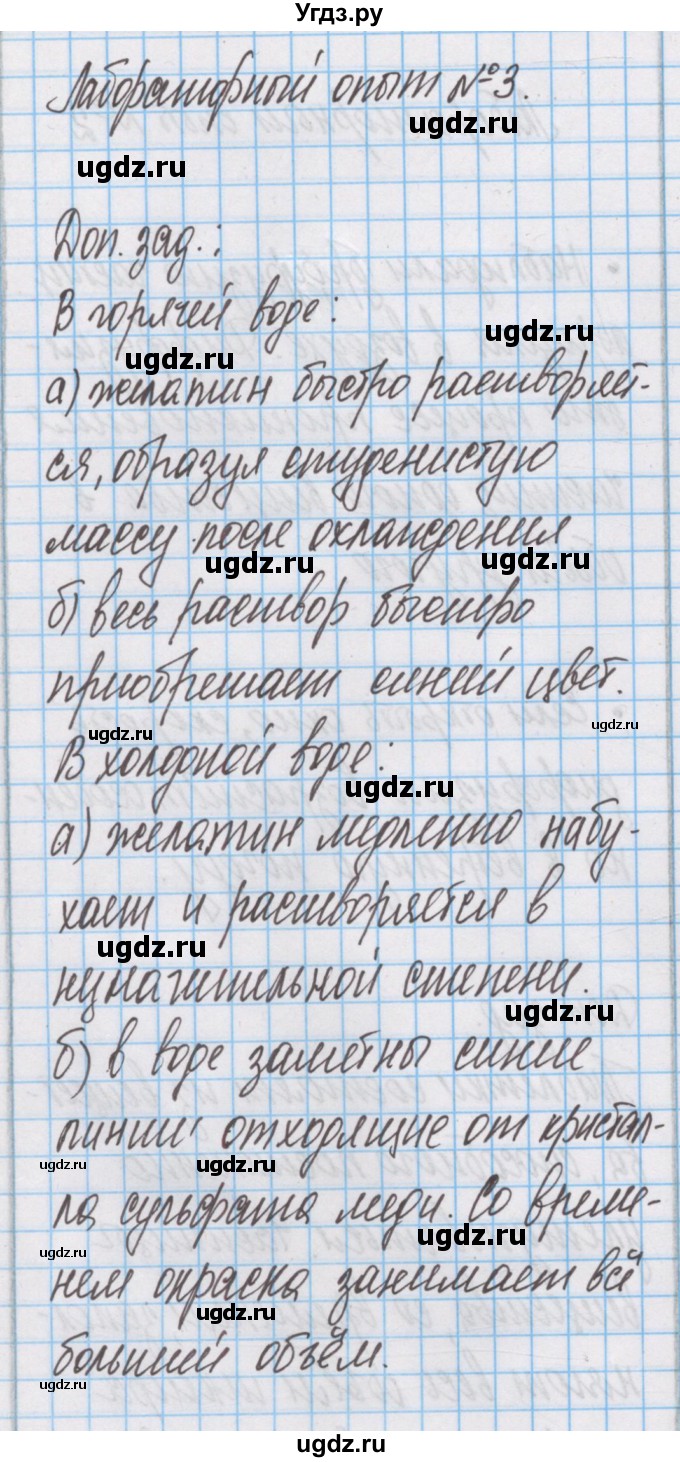 Угдз.ру
Лабораторный опыт №3.
ugdz.ru
ugdz.ru
Доп. зад.:
В горячей воде:
ugdz.ru
ugdz.ru
а) желатин быстро растворяет-
ся, образуя студенистую
массу после охлаждения
ugdz.ru
ugdz.ru
б) весь раствор быстро
приобретает синий цвет.
ugdz.ru
ugdz.ru
В холодной воде:
ugdz.ru
а) желатин медленно набу-
хает и растворяется в
ugdz.ru
незначительной степени.
ugdz.ru
б) в воде заметны синие
линии отходящие от кристал-
ugdz.ru
ugdz.ru
ла сульфата меди. Со време-
ugdz.ru
ugdz.ru
нем окраска занимает всё
ugdz.ru
больший объём.
ugdz.ru
ugdz.ru